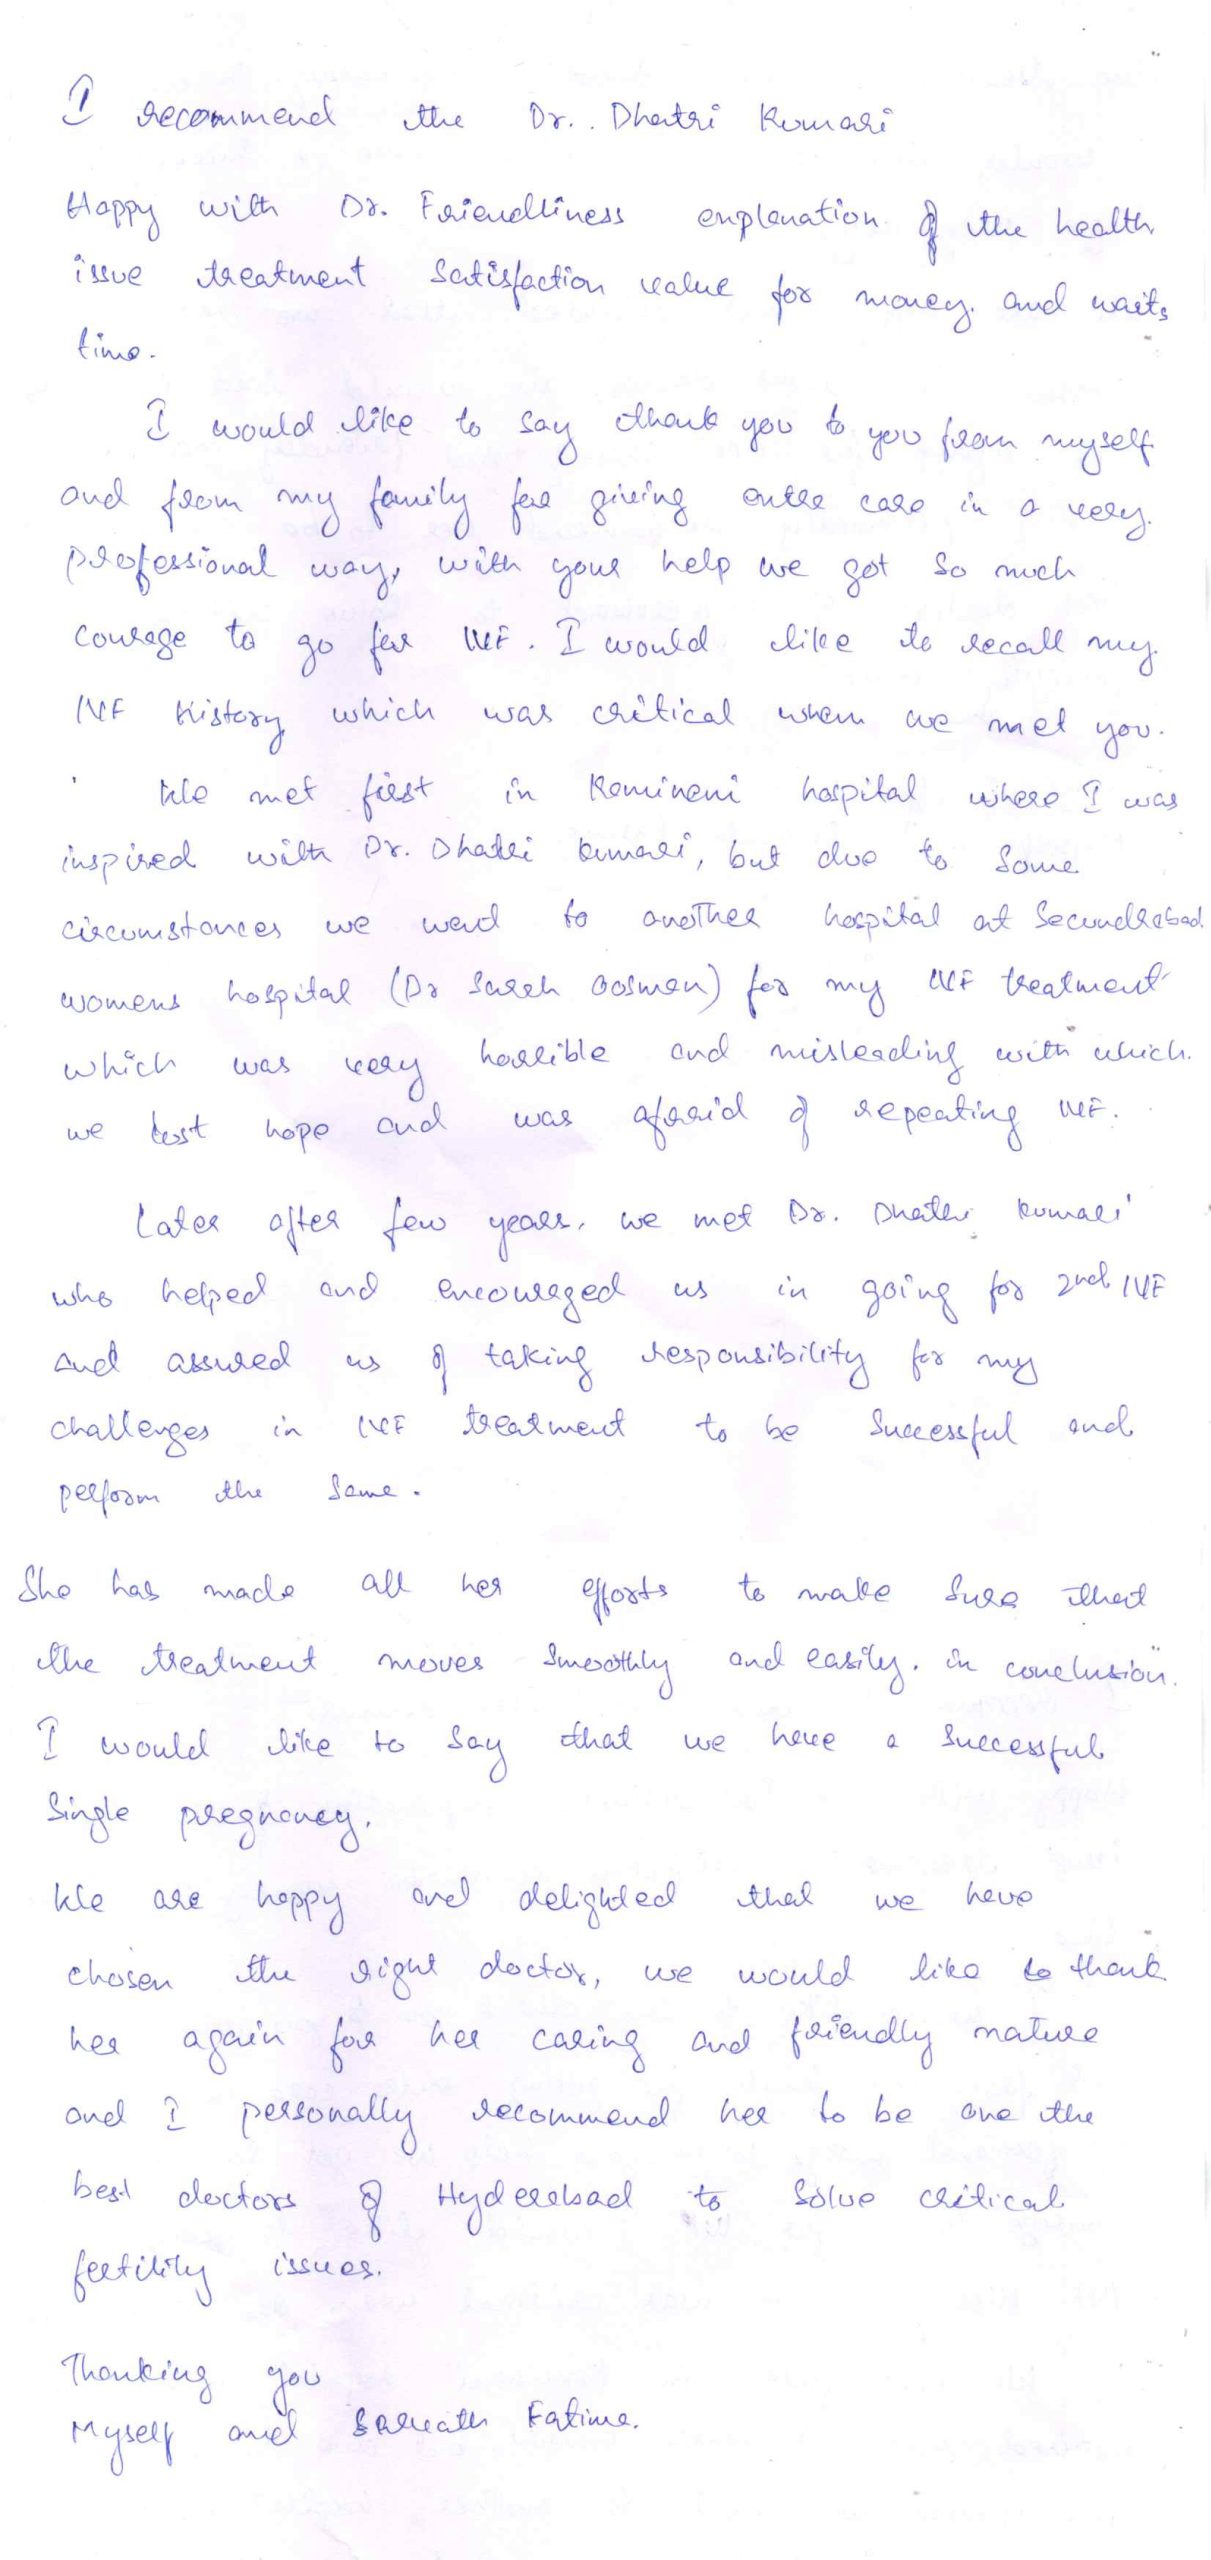 I recommend the Dr.. Dhatri Kumari
Happy with Dr. Friendliness explanation of the health
issue treatment Satisfaction value for money. and waits
time.
I would like to say thank you to you from myself
and from my family for giving entre care in a very.
professional way, with your help we got so much
courage to go for IVF. I would like to recall my
IVF History which was critical when we met you.
We met first in Kamineni hospital where I was
inspired with Dr. Dhatri Kumari, but due to some
circumstances we went to another hospital at Secundrabad
womens hospital (Dr Sarah Oosman) for my IVF treatment
which was very horrible and misleading with which.
we lost hope and was afraid of repeating IVF.
Later after few years, we met Dr. Dhatri Kumari
who helped and encouraged us in going for 2nd IVF
and assured us of taking responsibility for my
challenges in IVF treatment to be Successful and
perform the same.
She has made all her efforts to make sure that
the treatment moves smoothly and easily. in conclusion.
I would like to say that we have a successful
Single pregnancy.
We are happy and delighted that we have
chosen the right doctor, we would like to thank
her again for her caring and friendly nature
and I personally recommend her to be one the
best doctors of Hyderabad to solve critical
fertility issues.
Thanking you
Myself and Fatima.